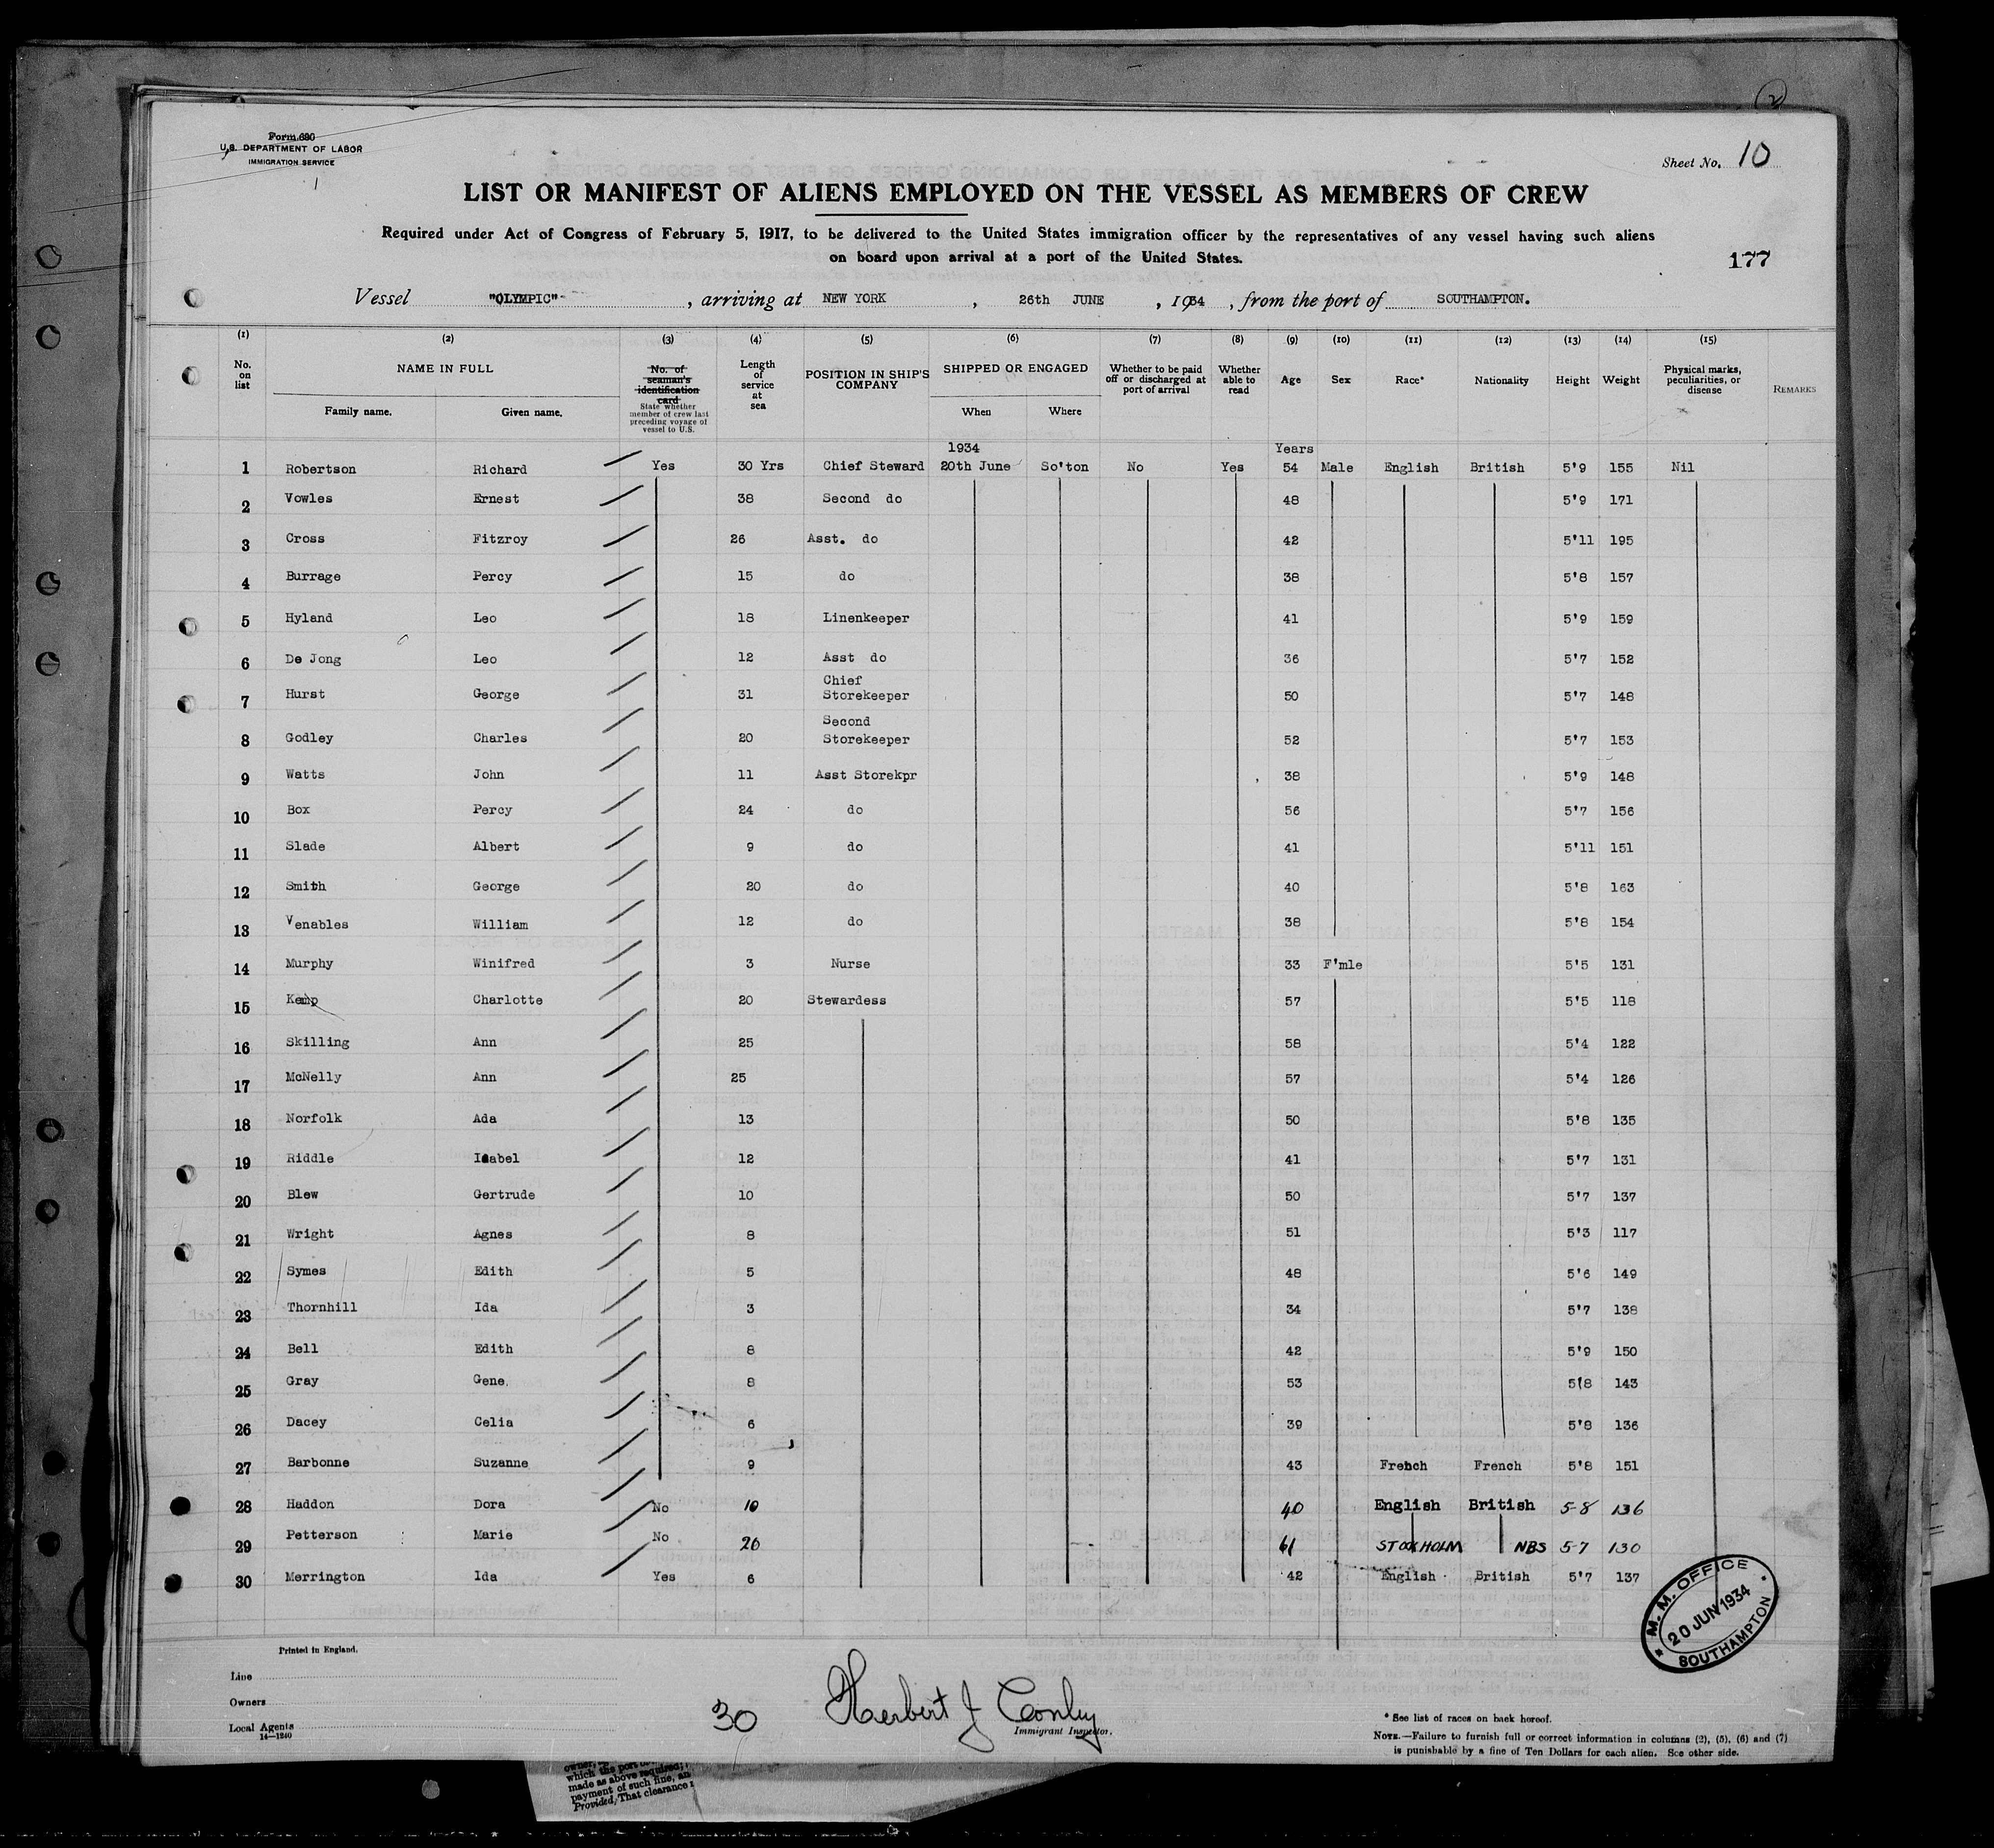 Form 680
U.S. DEPARTMENT OF LABOR
IMMIGRATION SERVICE
Sheet No. 10
LIST OR MANIFEST OF ALIENS EMPLOYED ON THE VESSEL AS MEMBERS OF CREW
Required under Act of Congress of February 5, 1917, to be delivered to the United States immigration officer by the representatives of any vessel having such aliens
on board upon arrival at a port of the United States.
177
Vessel "OLYMPIC" , arriving at NEW YORK , 26th JUNE , 1934 , from the port of SOUTHAMPTON.
(1) (2) (3) (4) (5) (6) (7) (8) (9) (10) (11) (12) (13) (14) (15)
No. on list NAME IN FULL Family name. Given name. No. of seaman's identification card State whether member of crew last preceding voyage of vessel to U.S. Length of service at sea POSITION IN SHIP'S COMPANY SHIPPED OR ENGAGED When Where Whether to be paid off or discharged at port of arrival Whether able to read Age Sex Race* Nationality Height Weight Physical marks, peculiarities, or disease REMARKS
1934 Years
1 Robertson Richard Yes 30 Yrs Chief Steward 20th June So'ton No Yes 54 Male English British 5'9 155 Nil
2 Vowles Ernest 38 Second do 48 5'9 171
3 Cross Fitzroy 26 Asst. do 42 5'11 195
4 Burrage Percy 15 do 38 5'8 157
5 Hyland Leo 18 Linenkeeper 41 5'9 159
6 De Jong Leo 12 Asst do 36 5'7 152
7 Hurst George 31 Chief Storekeeper 50 5'7 148
8 Godley Charles 20 Second Storekeeper 52 5'7 153
9 Watts John 11 Asst Storekpr 38 5'9 148
10 Box Percy 24 do 56 5'7 156
11 Slade Albert 9 do 41 5'11 151
12 Smith George 20 do 40 5'8 163
13 Venables William 12 do 38 5'8 154
14 Murphy Winifred 3 Nurse 33 F'mle 5'5 131
15 Kemp Charlotte 20 Stewardess 57 5'5 118
16 Skilling Ann 25 58 5'4 122
17 McNelly Ann 25 57 5'4 126
18 Norfolk Ada 13 50 5'8 135
19 Riddle Isabel 12 41 5'7 131
20 Blew Gertrude 10 50 5'7 137
21 Wright Agnes 8 51 5'3 117
22 Symes Edith 5 48 5'6 149
23 Thornhill Ida 3 34 5'7 138
24 Bell Edith 8 42 5'9 150
25 Gray Gene. 8 53 5(8 143
26 Dacey Celia 6 39 5'8 136
27 Barbonne Suzanne 9 43 French French 5'8 151
28 Haddon Dora No 10 40 English British 5-8 136
29 Petterson Marie No 26 61 STOCKHOLM NBS 5-7 130
30 Merrington Ida Yes 6 42 English British 5'7 137
M. M. OFFICE
20 JUN 1934
SOUTHAMPTON
Printed in England.
Line
Owners
Local Agents
14—1240
30
Herbert J Conly
Immigrant Inspector.
* See list of races on back hereof.
NOTE.—Failure to furnish full or correct information in columns (2), (5), (6) and (7)
is punishable by a fine of Ten Dollars for each alien. See other side.
which the port
made as above required;
payment of such fine, an
Provided, That clearance